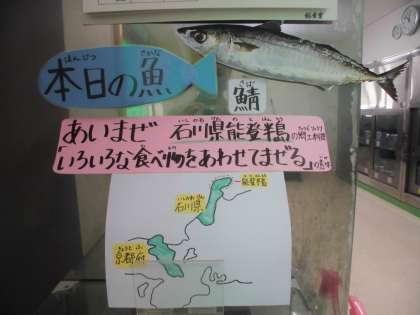 ほんじつ
さかな
本日の魚
さば
鯖
いしかわ けん の と はんとう
あいまぜ 石川県能登半島の郷土料理
「いろいろな食べ物をあわせてまぜる」の意味
能登半島
いしかわ けん
石川県
きょうと ふ
京都府